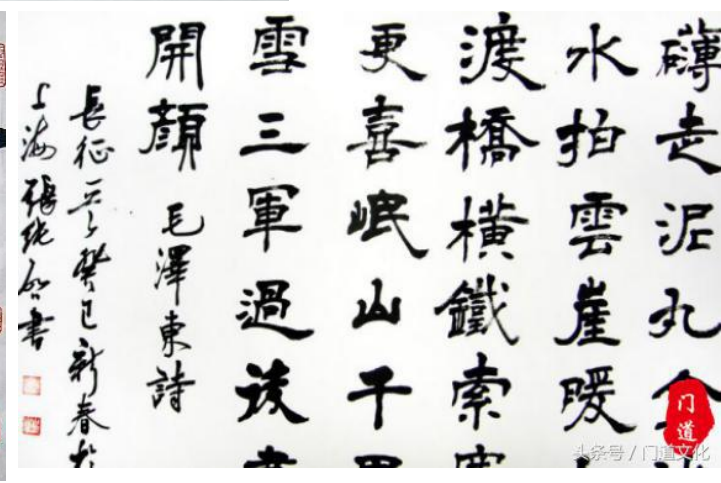 礴走泥丸
水拍雲崖暖
渡橋橫鐵索
更喜岷山千
雪三軍過後
開顏 毛澤東詩
長征 癸巳新春於
上海張 書
门道
头条号 / 门道文化